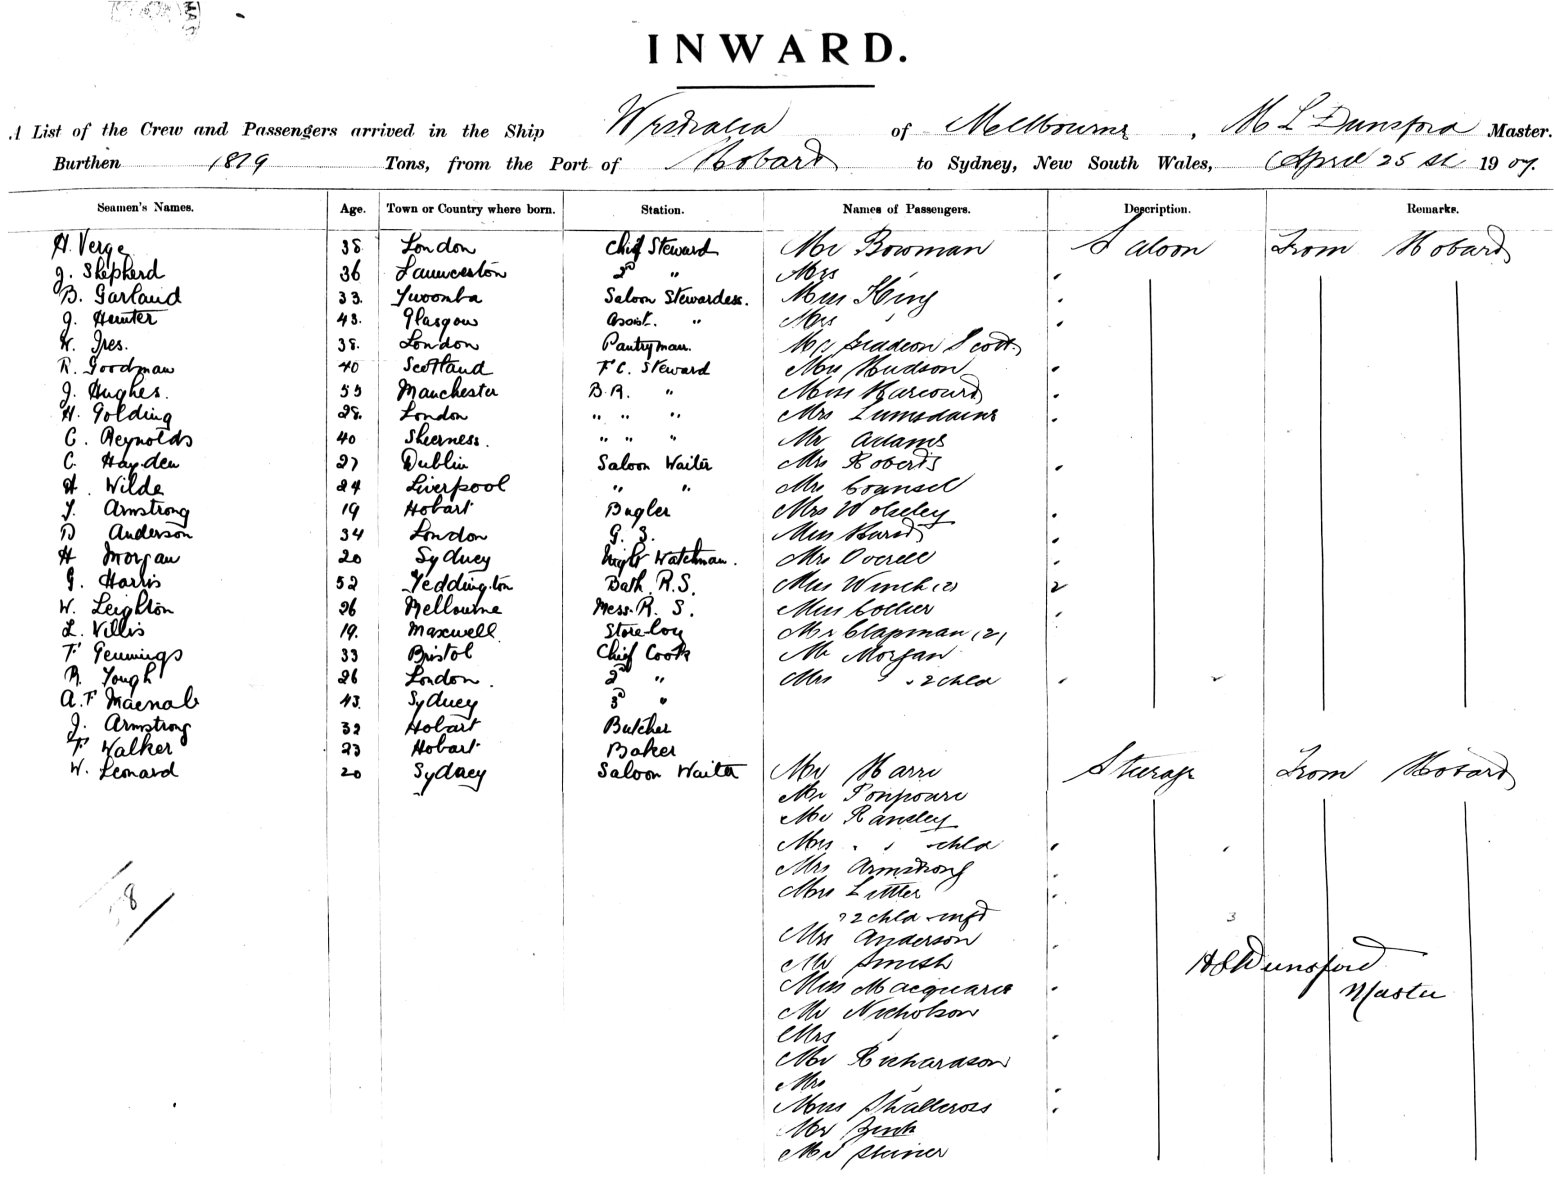 INWARD.
A List of the Crew and Passengers arrived in the Ship Westralia of Melbourne, M L Dunsford Master.
Burthen 1819 Tons, from the Port of Hobart to Sydney, New South Wales, April 25 1907.
Seamen's Names. Age. Town or Country where born. Station. Names of Passengers. Description. Remarks.
H. Verge 38 London Chief Steward Mr Bowman Saloon From Hobart
J. Shepherd 36 Launceston 2d " Mrs
B. Garland 33. Saloon Stewardess. Miss King
J. Hunter 43. Glasgow Assist. " Mrs "
W. Ives. 38. London Pantryman. Scott
R. Goodman 40 Scotland F.C. Steward Hudson
J. Hughes. 55 Manchester B.R. " Miss Harcourt
H. Golding 28. London " " " Mrs Lumsdaine
C. Reynolds 40 Sheerness. " " " Mr Adams
C. Hayden 27 Dublin Saloon Waiter Mrs Roberts
H. Wilde 24 Liverpool " " Mrs Counsel
T. Armstrong 19 Hobart Bugler Mrs Wolseley
D Anderson 34 London G. S. Miss
H Morgan 20 Sydney Night Watchman. Mrs Overell
G. Harris 52 Teddington Bath. R.S. Miss Winch (2) 2
W. Leighton 26 Melbourne Mess. R. S. Miss Collier
L. Villis 19. Maxwell Store-boy Mr Clapman (2)
F Jennings 33 Bristol Chief Cook Mr Morgan
R. Tough 26 London. 2d " Mrs " 2 chld
A.F Macnab 43. Sydney 3d "
J. Armstrong 32 Hobart Butcher
F Walker 23 Hobart Baker
W. Leonard 20 Sydney Saloon Waiter Mr Steerage From Hobart
Mr
Mr Ransley
Mrs " chld
Mrs Armstrong
Mrs Litter
" 2 chld infd
Mrs Anderson
Mr Smith
Miss Macquarie
Mr Nicholson
Mrs "
Mr Richardson
Mrs "
Miss Shallcross
Mr
Mr Skinner
3
Dunsford
Master